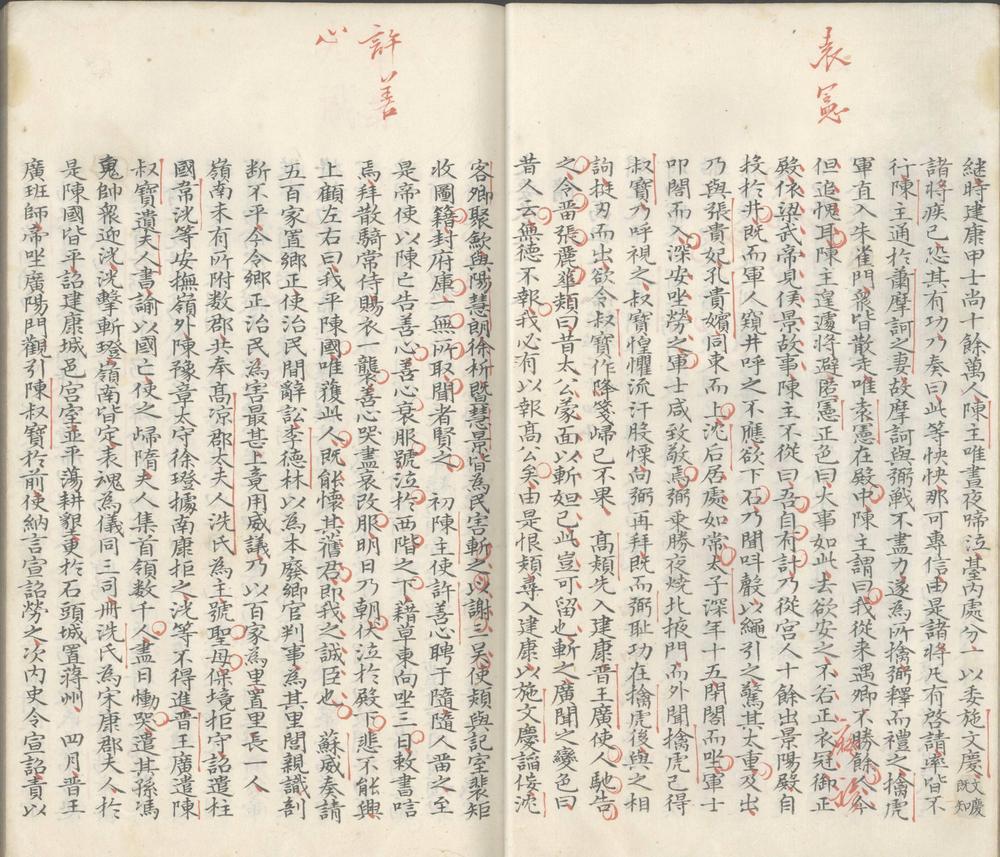 袁憲
繼時建康甲士尚十餘萬人陳主唯晝夜啼泣䑓内處分一以委施文慶文慶既知
諸將疾己恐其有功乃奏曰此等怏怏那可專信由是諸將凡有啓請率皆不
行陳王通於蕭摩訶之妻故摩訶與弼戰不盡力遂為所擒弼釋而禮之擒虎
軍直入朱雀門衆皆散走唯袁憲在殿中陳主謂曰我從來遇卿不勝餘人今
但追愧耳陳主遑遽將避匿憲正色曰大事如此去欲安之不若正衣冠御正
殿依梁武帝見侯景故事陳主不從曰吾自有計乃從宮人十餘出景陽殿自
投於井既而軍人窺井呼之不應欲下石乃聞呌聲以繩引之驚其太重及出
乃與張貴妃孔貴嬪同束而上沈后居處如常太子深年十五閉閤而坐軍士
叩閤而入深安坐勞之軍士咸致敬焉弼乘勝夜燒北掖門而外聞擒虎已得
叔寶乃呼視之叔寶惶懼流汗股慄向弼再拜既而弼恥功在擒虎後與之相
訽挺刃而出欲令叔寶作降箋歸己不果 高熲先入建康晉王廣使人馳告
之令畱張麗華熲曰昔太公蒙面以斬妲己此豈可留也斬之廣聞之變色曰
昔人云無德不報我必有以報高公矣由是恨熲尋入建康以施文慶諂佞沈
許善心
客卿聚歛與陽慧朗徐析曁慧景皆為民害斬之以謝三吴使熲與記室裴矩
收圖籍封府庫一無所取聞者賢之 初陳主使許善心聘于隨隨人畱之至
是帝使以陳亡告善心善心衰服號泣於西階之下藉草東向坐三日敕書唁
焉拜散騎常侍賜衣一襲善心哭盡哀改服明日乃朝伏泣於殿下悲不能興
上顧左右曰我平陳國唯獲此人既能懷其舊君即我之誠臣也 蘇威奏請
五百家置鄉正使治民間辭訟李德林以為本廢鄉官判事為其里閭親識剖
断不平今令鄉正治民為害最甚上竟用威議乃以百家為里置里長一人
嶺南未有所附數郡共奉高涼郡太夫人洗氏為主號聖母保境拒守詔遣柱
國韋洸等安撫嶺外陳豫章太守徐璒據南康拒之洸等不得進晉王廣遣陳
叔寶遺夫人書諭以國亡使之歸隋夫人集首領數千人盡日慟哭遣其孫馮
䰟帥衆迎洸洸擊斬璒嶺南皆定表魂為儀同三司冊洗氏為宋康郡夫人於
是陳國皆平詔建康城邑宮室並平蕩耕墾更於石頭城置蔣州 四月晉王
廣班師帝坐廣陽門觀引陳叔寶於前使納言宣詔勞之次内史令宣詔責以